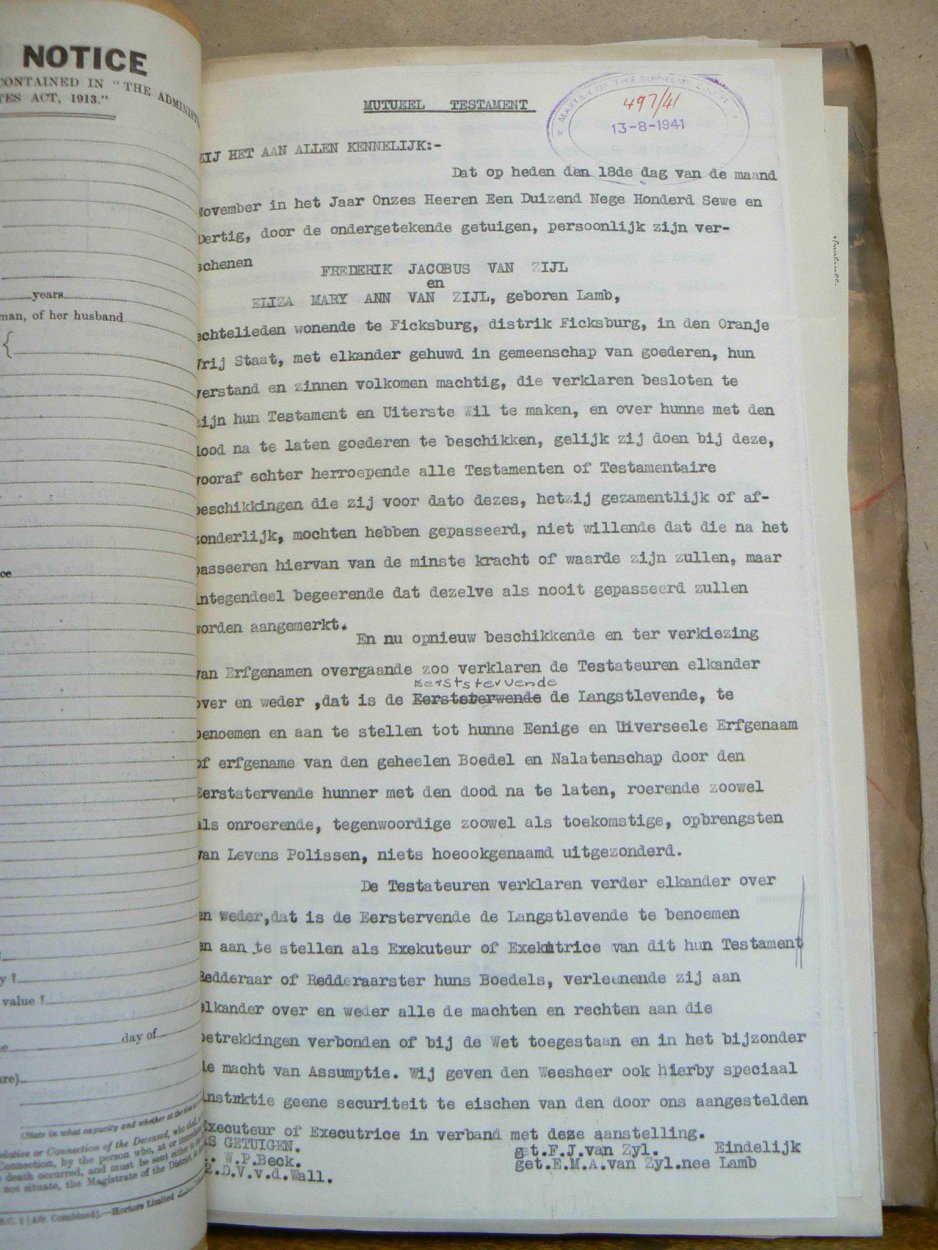 NOTICE
CONTAINED IN "THE
ACT, 1913."
years
man, of her husband
value ?
day of
MUTUEEL TESTAMENT
MASTER OF THE SUPREME COURT
497/41
13-8-1941
ZIJ HET AAN ALLEN KENNELIJK:-
Dat op heden den 18de dag van de maand
November in het Jaar Onzes Heeren Een Duizend Nege Honderd Sewe en
Dertig, door de ondergetekende getuigen, persoonlijk zijn ver-
schenen
FREDERIK JACOBUS VAN ZIJL
en
ELIZA MARY ANN VAN ZIJL, geboren Lamb,
echtelieden wonende te Ficksburg, distrik Ficksburg, in den Oranje
Vrij Staat, met elkander gehuwd in gemeenschap van goederen, hun
verstand en zinnen volkomen machtig, die verklaren besloten te
zijn hun Testament en Uiterste Wil te maken, en over hunne met den
dood na te laten goederen te beschikken, gelijk zij doen bij deze,
vooraf echter herroepende alle Testamenten of Testamentaire
beschikkingen die zij voor dato dezes, hetzij gezamentlijk of af-
zonderlijk, mochten hebben gepasseerd, niet willende dat die na het
passeeren hiervan van de minste kracht of waarde zijn zullen, maar
integendeel begeerende dat dezelve als nooit gepasseerd zullen
worden aangemerkt.
En nu opnieuw beschikkende en ter verkiezing
van Erfgenamen overgaande zoo verklaren de Testateuren elkander
eerststervende
over en weder ,dat is de Eersteterwende de Langstlevende, te
benoemen en aan te stellen tot hunne Eenige en Uiverseele Erfgenaam
of erfgename van den geheelen Boedel en Nalatenschap door den
Eerststervende hunner met den dood na te laten, roerende zoowel
als onroerende, tegenwoordige zoowel als toekomstige, opbrengsten
van Levens Polissen, niets hoeookgenaamd uitgezonderd.
De Testateuren verklaren verder elkander over
en weder,dat is de Eerstervende de Langstlevende te benoemen
en aan te stellen als Exekuteur of Exekutrice van dit hun Testament
Redderaar of Redderaarster huns Boedels, verleenende zij aan
elkander over en weder alle de machten en rechten aan die
betrekkingen verbonden of bij de Wet toegestaan en in het bijzonder
de macht van Assumptie. Wij geven den Weesheer ook hierby speciaal
instruktie geene securiteit te eischen van den door ons aangestelden
Executeur of Executrice in verband met deze aanstelling.
AS GETUIGEN.
get.F.J.van Zyl. Eindelijk
W.P.Beck.
get.E.M.A.van Zyl.nee Lamb
D.V.v.d.Wall.
(State in what capacity and whether at the
Relative or Connection of the Deceased, who
Connection, by the person who, at or
death occurred, and must be sent either
not situate, the Magistrate of the District,
Hortors Limited